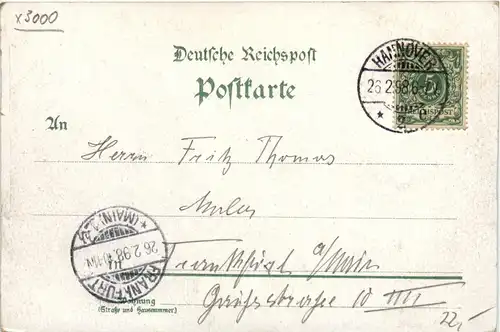 x3000
Deutsche Reichspost
Postkarte
HANNOVER
26.2.98.
5
REICHSPOST
An
Herrn Fritz Thomas
Maler
Frankfurt a/Main
FRANKFURT (MAIN) 1
26.2.98.
Wohnung
(Straße und Hausnummer)
10 IIII
22,-